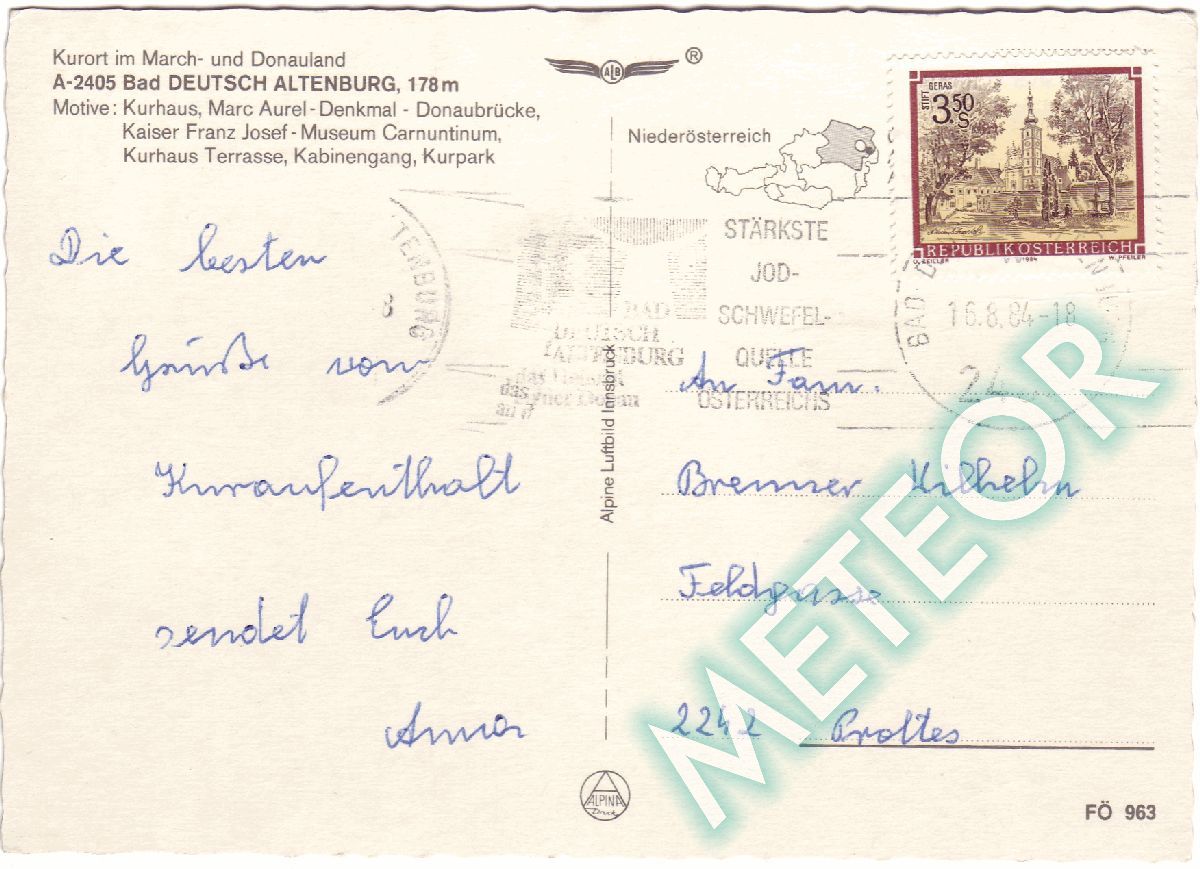 Kurort im March- und Donauland
A-2405 Bad DEUTSCH ALTENBURG, 178 m
Motive: Kurhaus, Marc Aurel-Denkmal - Donaubrücke,
Kaiser Franz Josef - Museum Carnuntinum,
Kurhaus Terrasse, Kabinengang, Kurpark
ALB ®
Niederösterreich
STIFT GERAS
3.50 S
REPUBLIK ÖSTERREICH
1984 W. PFEILER
TENBURG
8
BAD
DEUTSCH
ALTENBURG
STÄRKSTE
JOD-
SCHWEFEL-
QUELLE
ÖSTERREICHS
BAD
16.8.84-18
24
Die besten
Grüße vom
Kuraufenthalt
sendet Euch
Anna
Alpine Luftbild Innsbruck
An Fam.
Brenner Wilhelm
Feldgasse
2242 Prottes
ALPINA
Druck
FÖ 963
METEOR